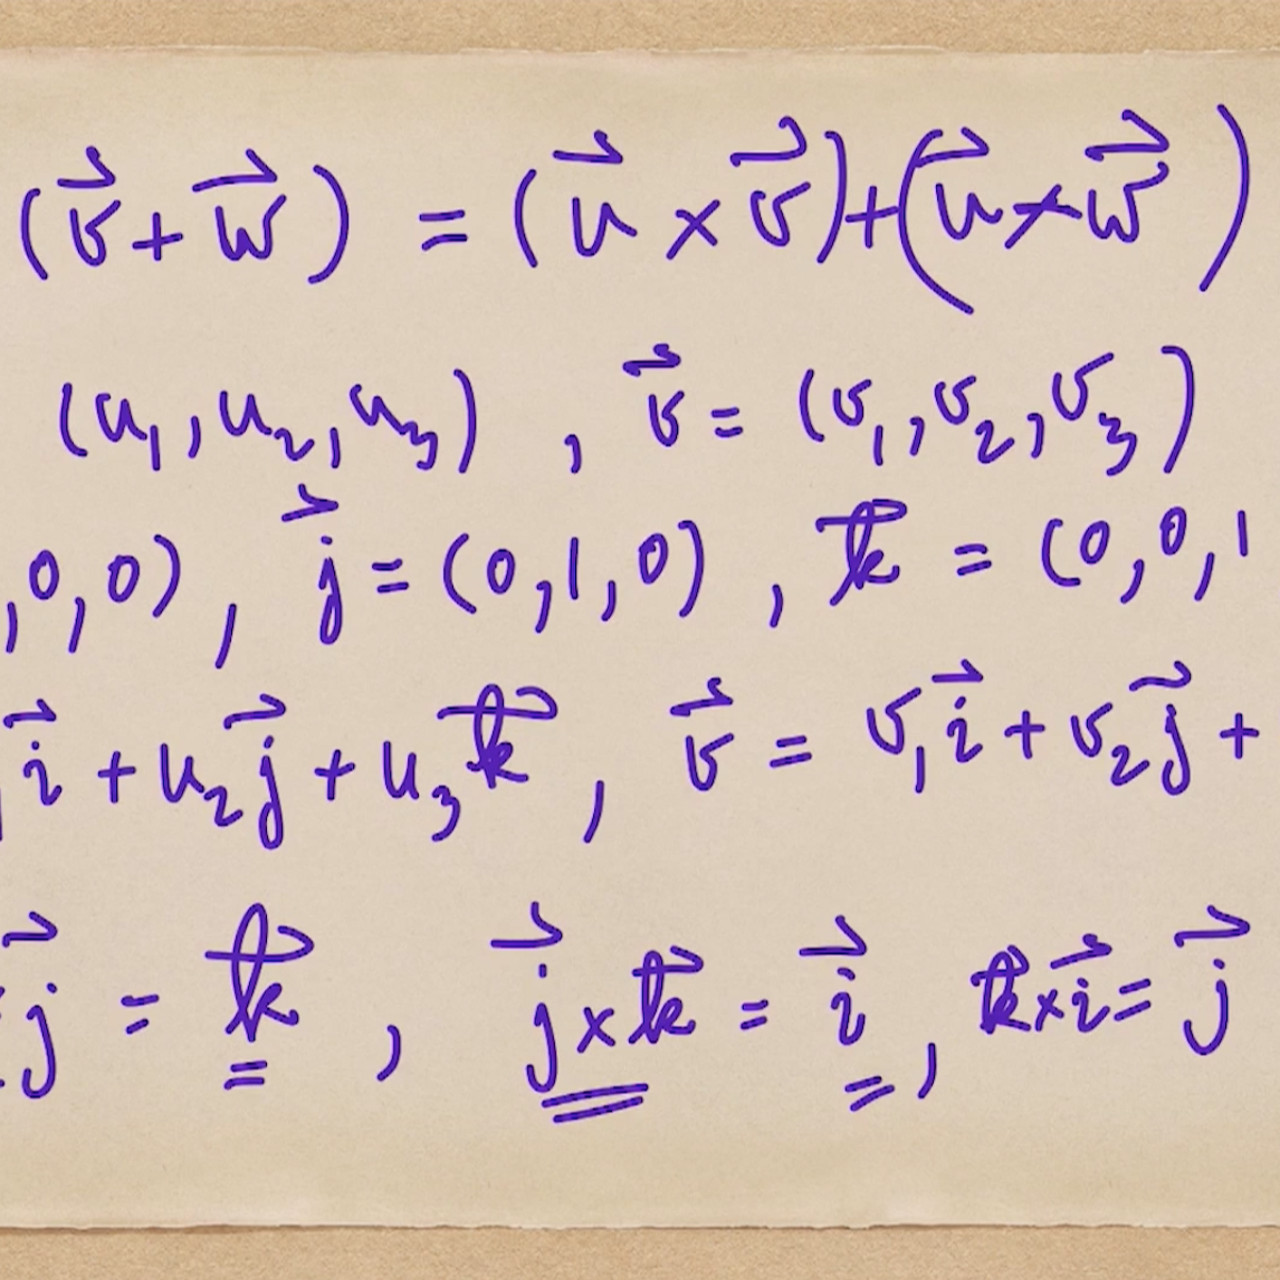 (v⃗ + w⃗) = (u⃗ × v⃗) + (u⃗ × w⃗)
(u₁, u₂, u₃) , v⃗ = (v₁, v₂, v₃)
, 0, 0) , j⃗ = (0, 1, 0) , k⃗ = (0, 0, 1
i⃗ + u₂j⃗ + u₃k⃗ , v⃗ = v₁i⃗ + v₂j⃗ +
j⃗ = k⃗ , j⃗ × k⃗ = i⃗ , k⃗ × i⃗ = j⃗